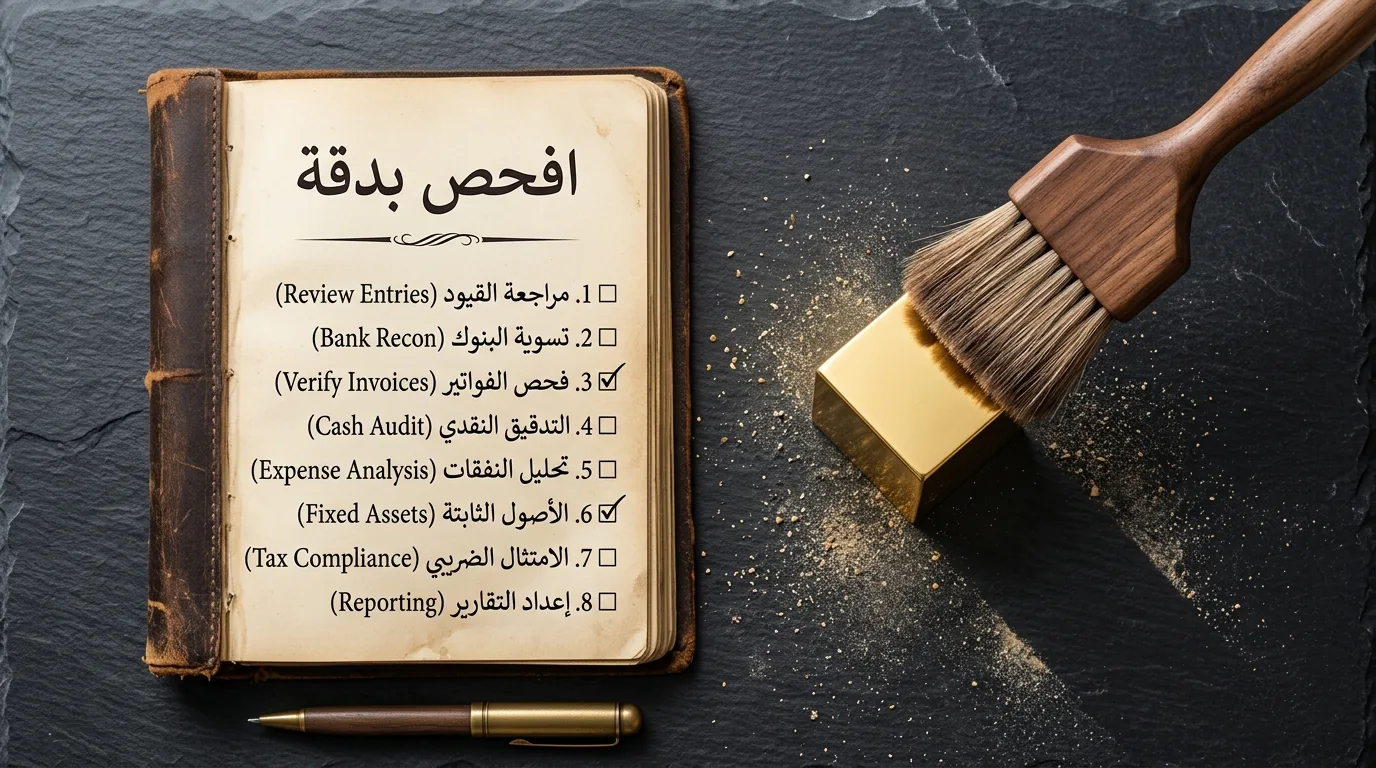 افحص بدقة
☐ 1. مراجعة القيود (Review Entries)
☐ 2. تسوية البنوك (Bank Recon)
☑ 3. فحص الفواتير (Verify Invoices)
☐ 4. التدقيق النقدي (Cash Audit)
☐ 5. تحليل النفقات (Expense Analysis)
☑ 6. الأصول الثابتة (Fixed Assets)
☐ 7. الامتثال الضريبي (Tax Compliance)
☐ 8. إعداد التقارير (Reporting)